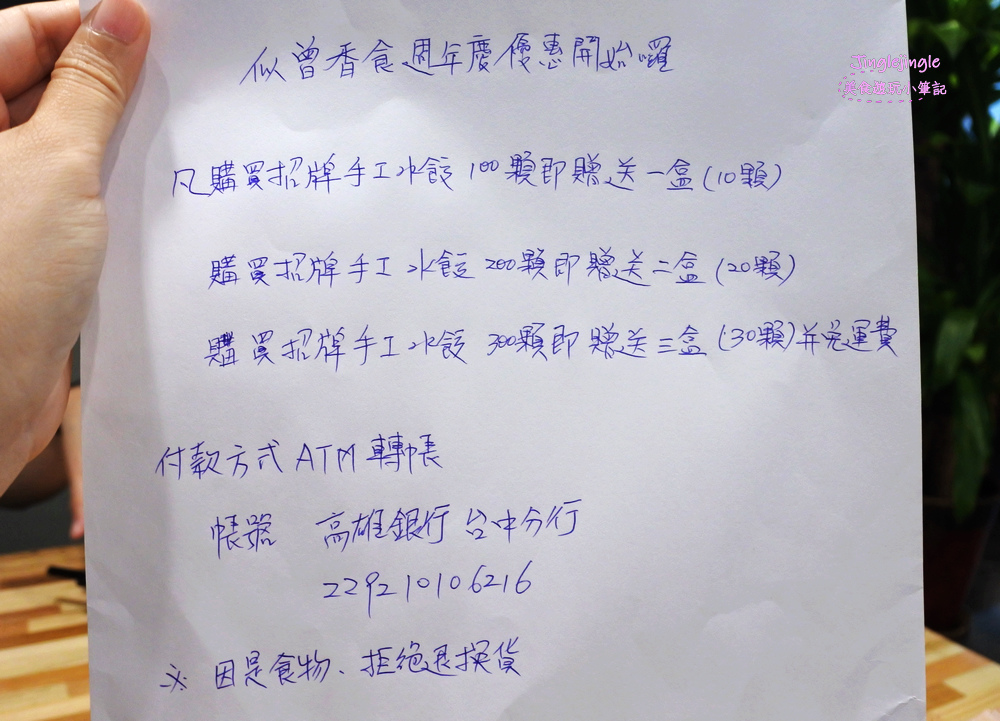 似曾香食週年慶優惠開始囉
Jinglejingle
美食遊玩小筆記
凡購買招牌手工水餃100顆即贈送一盒(10顆)
購買招牌手工水餃200顆即贈送二盒(20顆)
購買招牌手工水餃300顆即贈送三盒(30顆)并免運費
付款方式ATM轉帳
帳號 高雄銀行台中分行
229210106216
※因是食物、拒絕退換貨